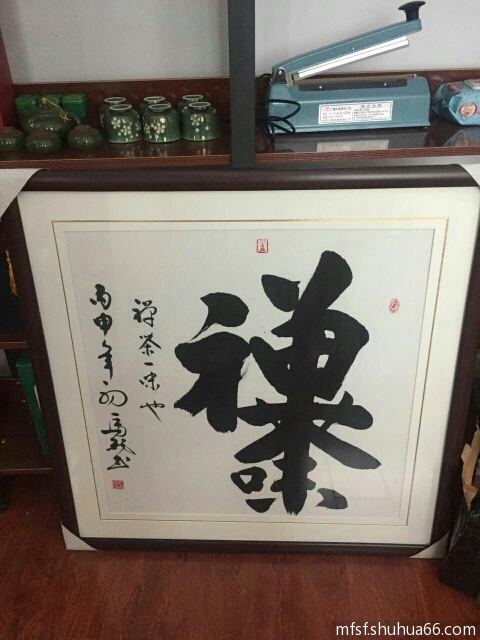 禅茶一味
禅茶一味也
丙申年初
mfsf.shuhua66.com